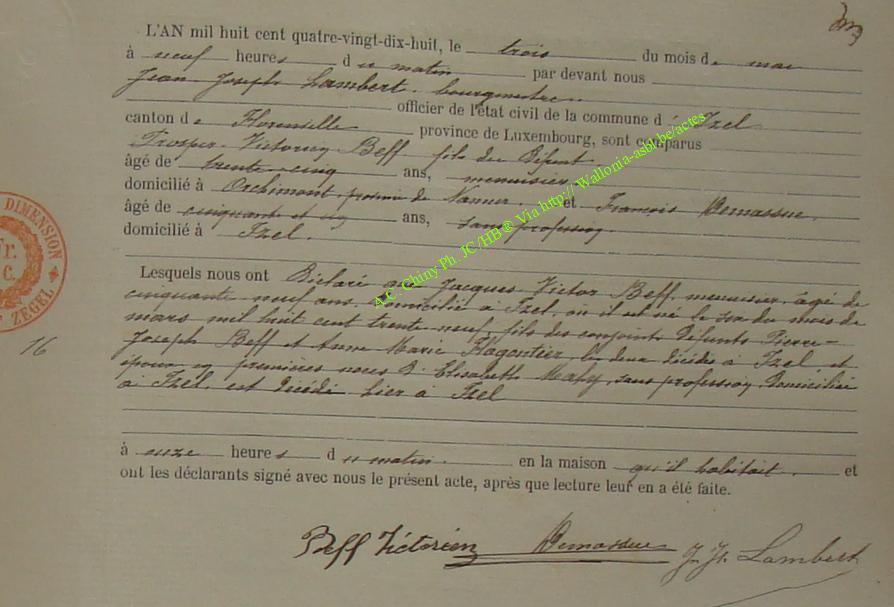 L'AN mil huit cent quatre-vingt-dix-huit, le trois du mois de mai
à neuf heures du matin par devant nous
Jean Joseph Lambert, bourgmestre
officier de l'état civil de la commune d'Izel
canton de Florenville province de Luxembourg, sont comparus
Prosper Victorien Beff fils du défunt
âgé de trente cinq ans, menuisier
domicilié à Orchimont, province de Namur. et François Demasure
âgé de cinquante et un ans, sans profession
domicilié à Izel.
Lesquels nous ont Déclaré que Jacques Victor Beff, menuisier, âgé de
cinquante neuf ans, domicilié à Izel, où il est né le du mois de
mars mil huit cent trente neuf, fils des conjoints défunts Pierre=
Joseph Beff et Anne Marie les deux décédés à Izel, et
époux en premières noces d'Elisabeth sans profession, domiciliée
à Izel, est décédé hier à Izel
à onze heures du matin. en la maison qu'il habitait. et
ont les déclarants signé avec nous le présent acte, après que lecture leur en a été faite.
Beff Victorien Demasure J. Jh. Lambert
16
DIMENSION
Fr.
C.
ZEGEL
A.C. Chiny Ph. JC/HB® Via http://Wallonia-asbl.be/actes